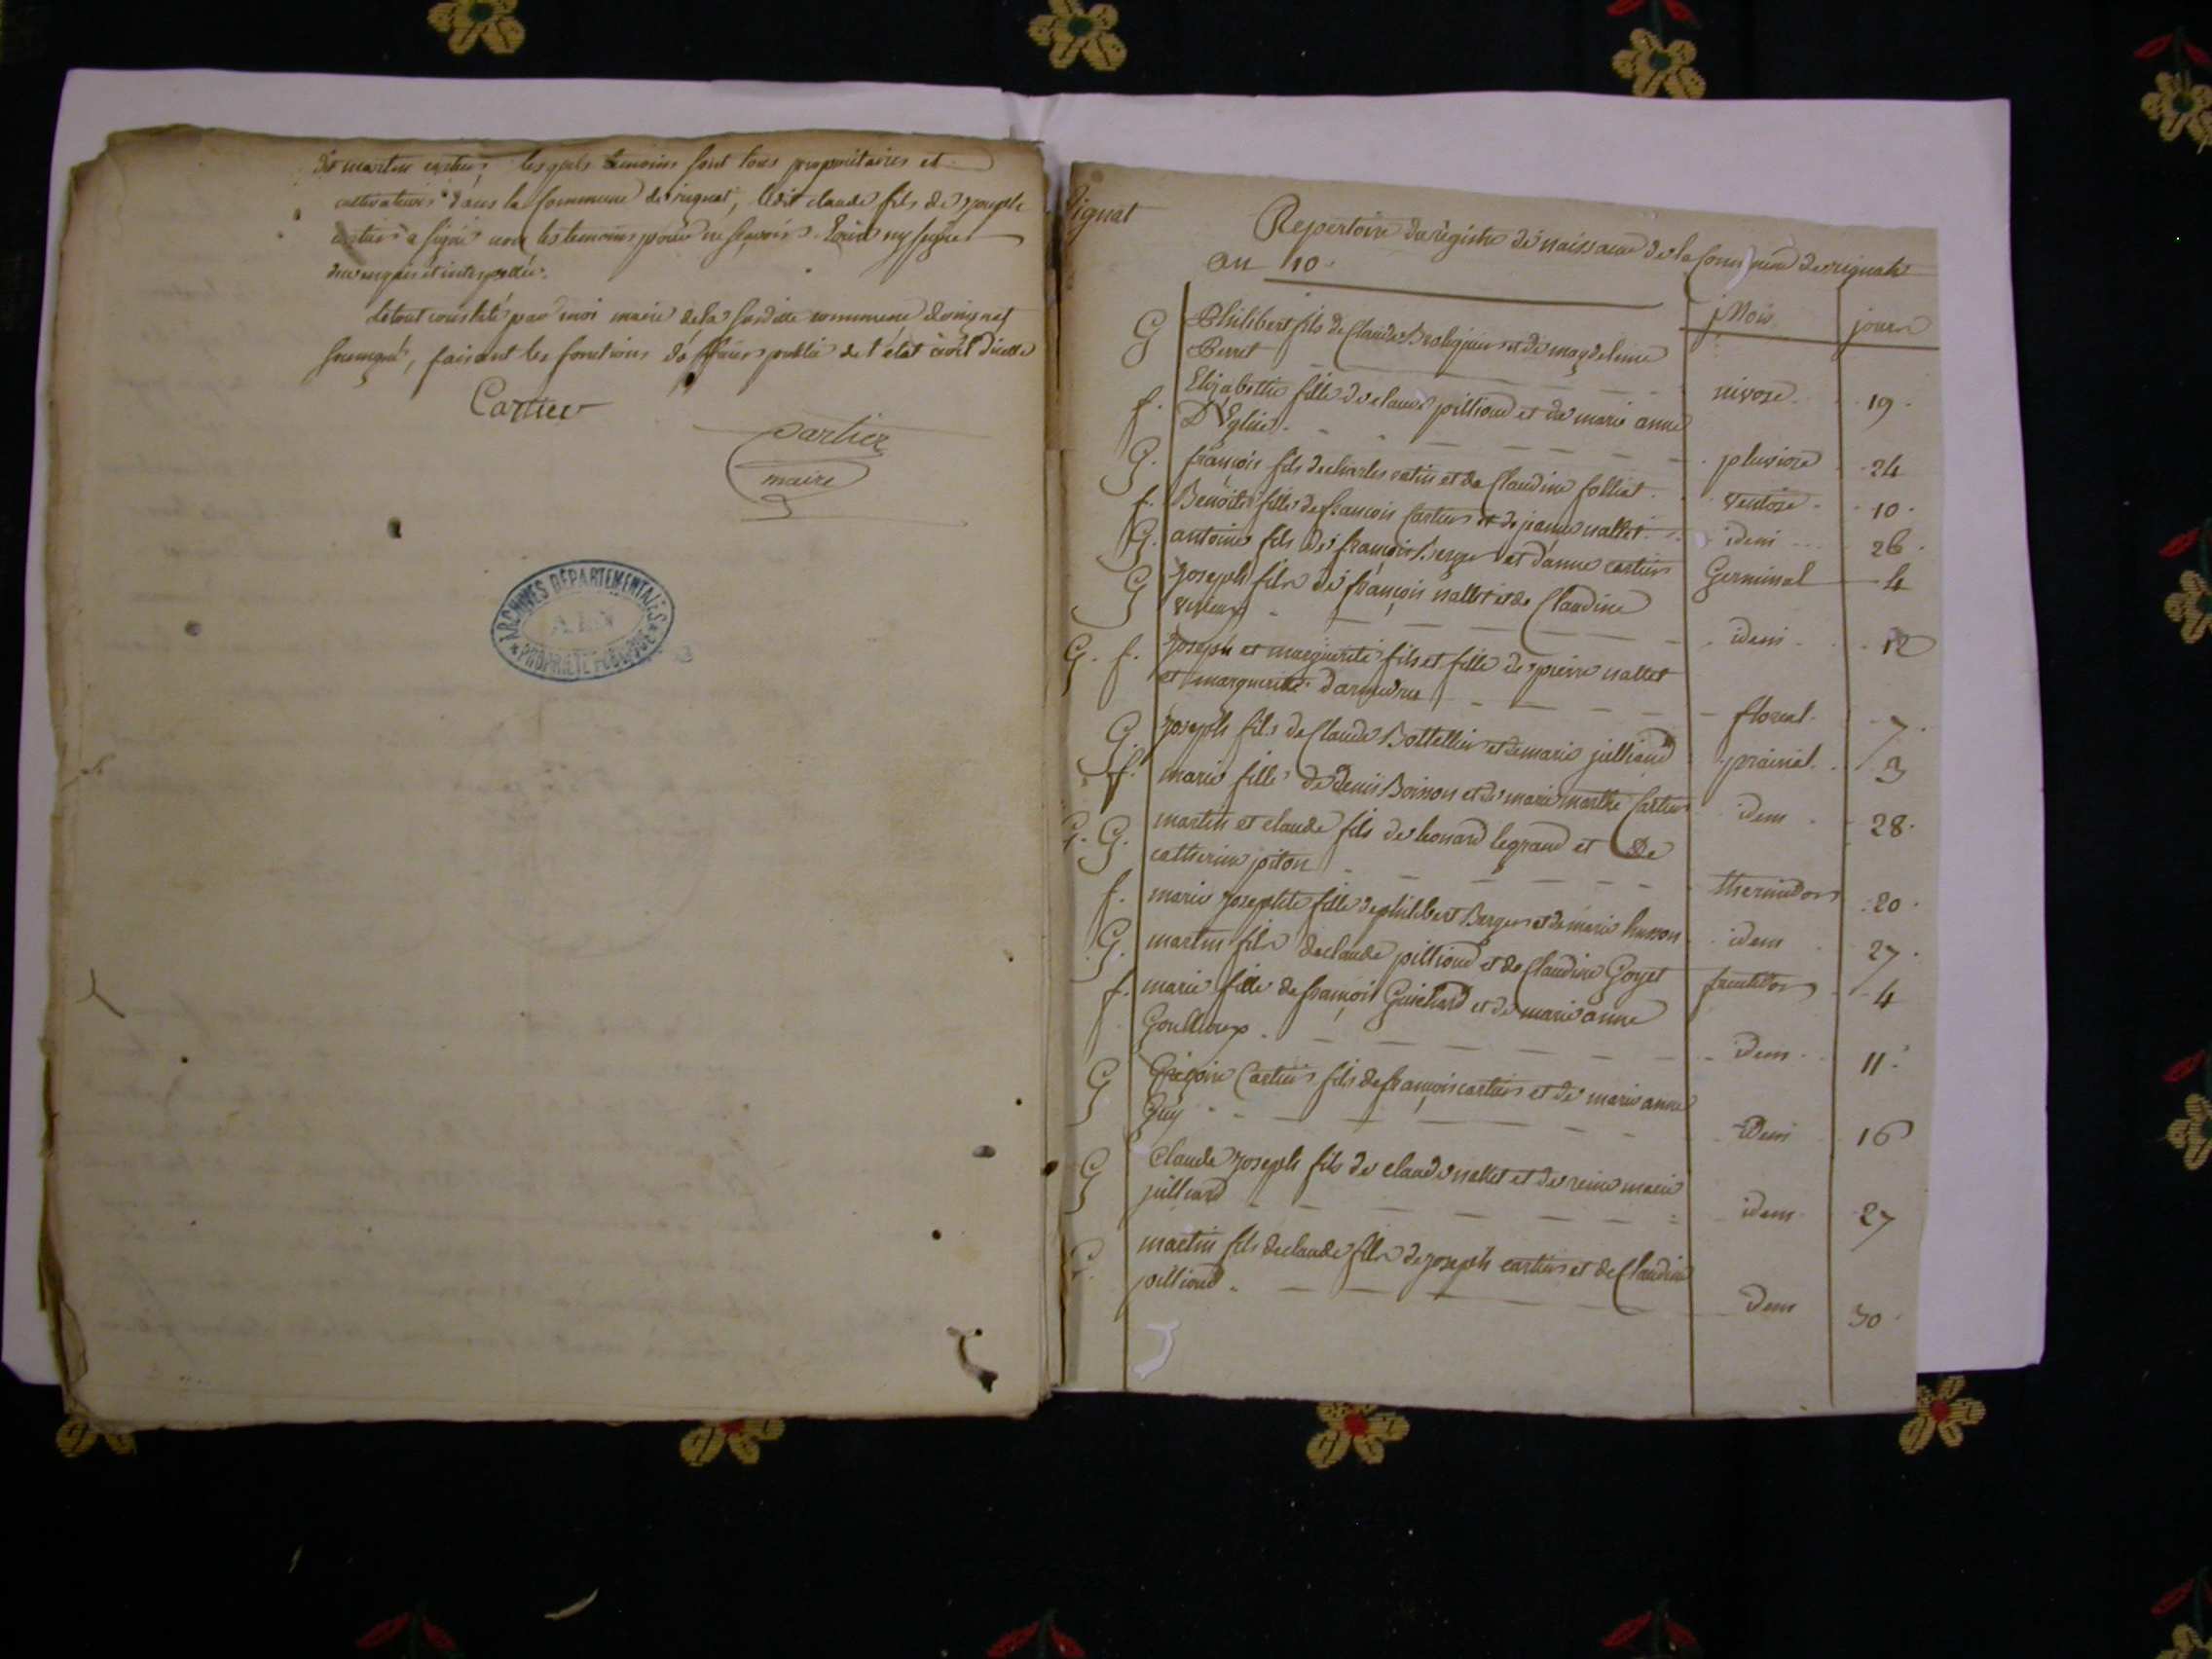 martin cartier, lesquels temoins sont tous propriétaires et
cultivateurs dans la commune de rignat, ledit claude fils de joseph
cartier a signé non les temoins pour ne sçavoir ecrire ny signer
de ce enquis et interpellés.
Le tout constaté par moi maire de la susditte commune de rignat
soussigné, faisant les fonctions d'officier public de l'état civil d'icelle
Cartier
Cartier
maire
ARCHIVES DÉPARTEMENTALES
AIN
PROPRIÉTÉ PUBLIQUE
Rignat
Repertoire du registre de naissance de la Commune de rignat
an 10.
Mois jours
G Philibert fils de Claude et de magdeleine
Perret nivose 19
f. Elizabethe fille de claude pilliond et de marie anne
D'Eglise pluviose 24
G. françois fils de charles et de Claudine folliet ventose 10
f. Benoite fille de françois Cartier et de jeanne nallet idem 26
G. antoine fils de françois Berger et d'anne cartier Germinal 4
G Joseph fils de françois nallet et de Claudine
idem 12
G. f. Joseph et marguerite fils et fille de pierre nallet
et marguerite floreal 7
G. Joseph fils de Claude Bottellier et de marie julliard prairial 3
f. marie fille de denis Boisson et de marie marthe Cartier idem 28
G. G. martin et claude fils de leonard legrand et De
catherine piton thermidor 20
f. marie Josephte fille de philibert Berger et de marie husson idem 27
G. martin fils de claude pilliond et de Claudine Goyet fructidor 4
f. marie fille de françois Guichard et de marie anne
Goulloux idem 11
G Gregoire Cartier fils de françois cartier et de marie anne
Guy idem 16
G Claude Joseph fils de claude nallet et de reine marie
julliard idem 27
G. martin fils de claude fils de joseph cartier et de Claudine
pilliond idem 30